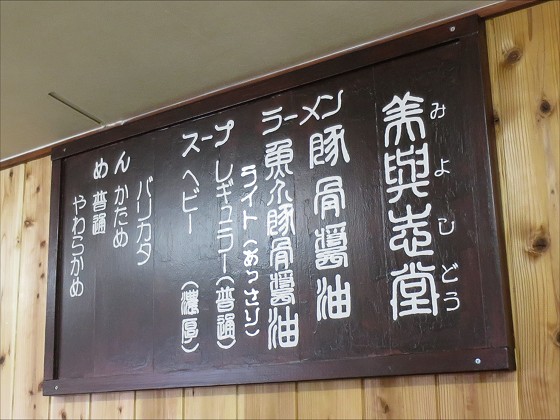 美與志堂
みよしどう
ラーメン
豚骨醤油
魚介豚骨醤油
スープ
ライト(あっさり)
レギュラー(普通)
ヘビー(濃厚)
めん
バリカタ
かため
普通
やわらかめ